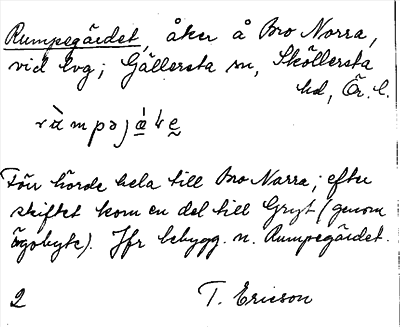 Rumpegärdet, åker å Bro Norra,
vid lvg; Gällersta sn, Sköllersta
hd, Ör. l.
Förr hörde hela till Bro Norra; efter
skiftet kom en del till Gryt (genom
ägobyte). Jfr bebygg. n. Rumpegärdet.
2 T. Ericson